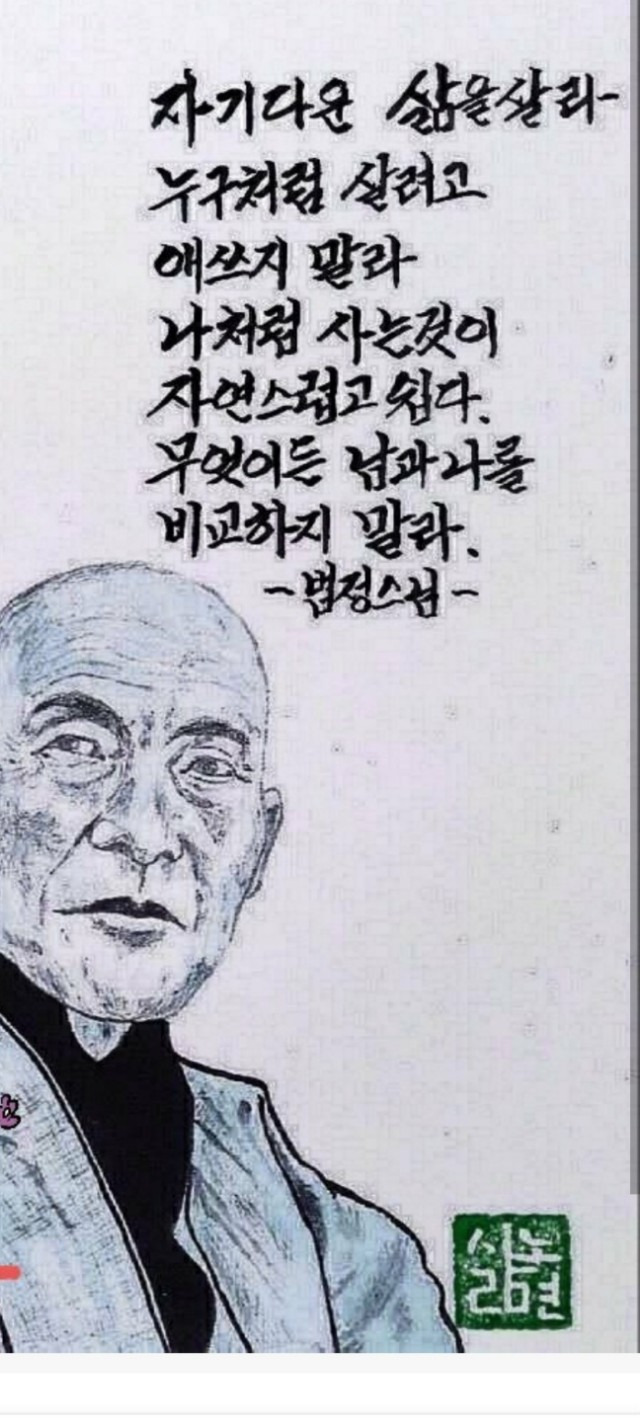 자기다운 삶을 살라
누구처럼 살려고
애쓰지 말라
나처럼 사는것이
자연스럽고 쉽다.
무엇이든 남과 나를
비교하지 말라.
-법정스님-